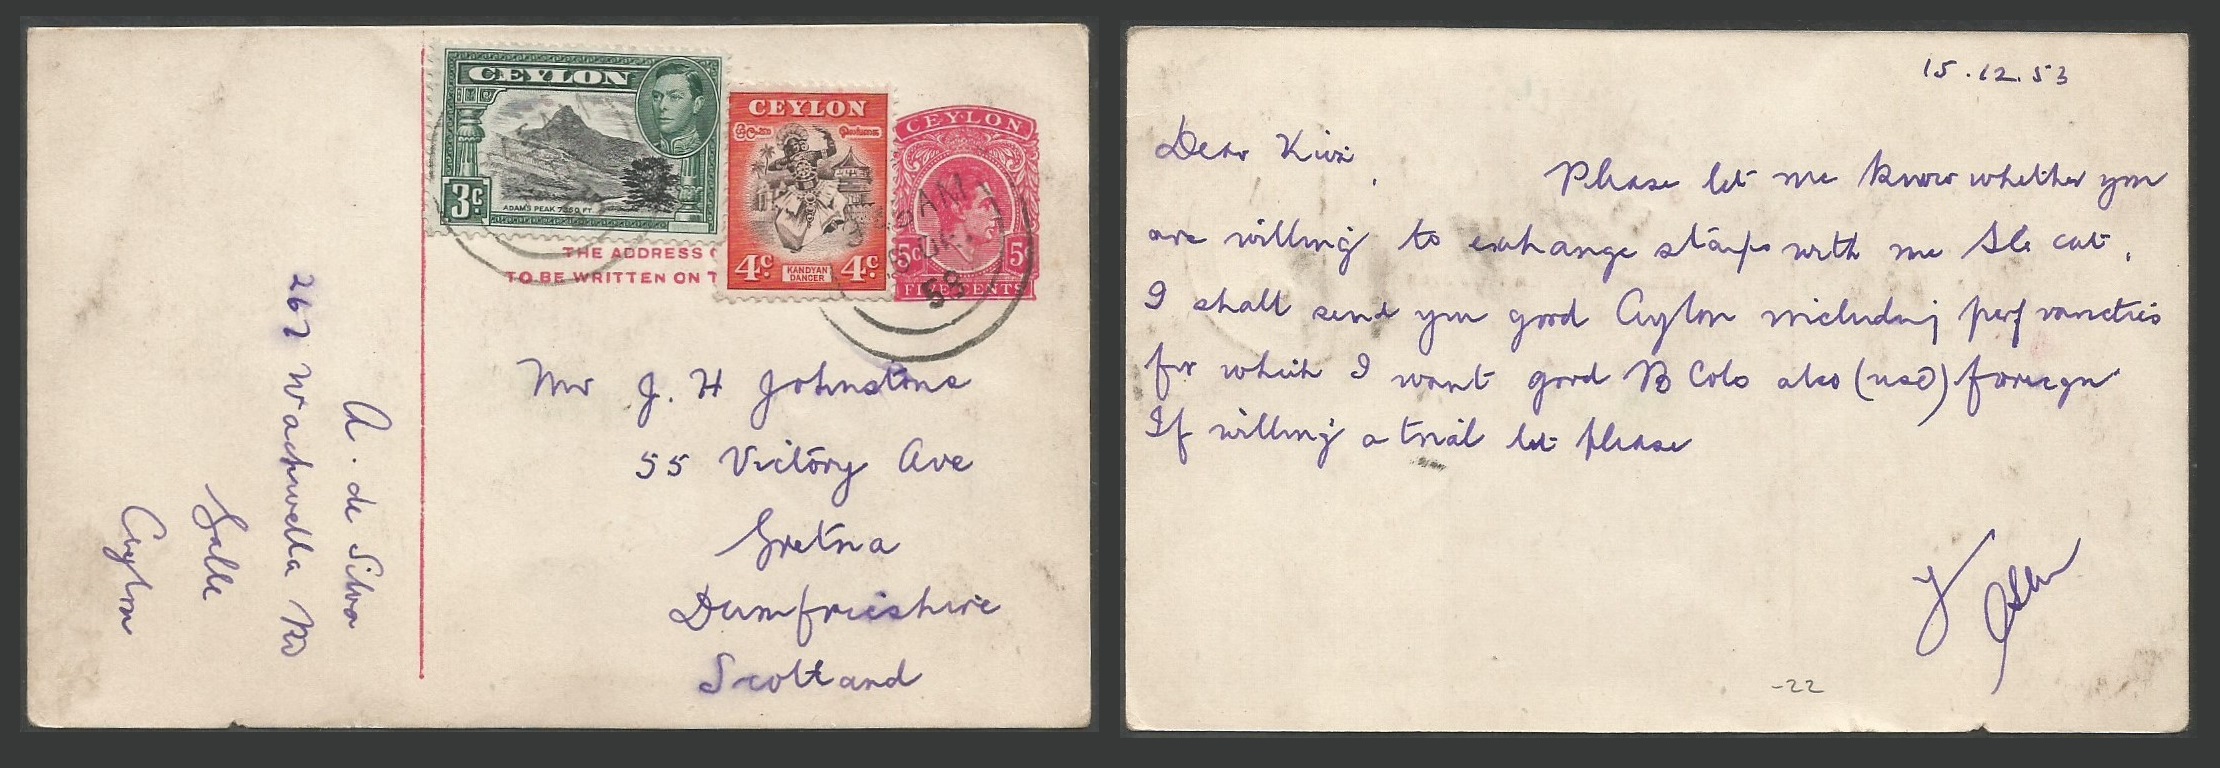 CEYLON
3c
ADAM'S PEAK 7360 FT
CEYLON
4c 4c
KANDYAN
DANCER
CEYLON
5c 5c
FIVE CENTS
THE ADDRESS
TO BE WRITTEN ON T
Mr J. H Johnstone
55 Victory Ave
Gretna
Dumfrieshire
Scotland
A. de Silva
267 Wackwella Rd
Galle
Ceylon
15.12.53
Dear Kira,
Please let me know whether you
are willing to exchange stamps with me cat.
I shall send you good Ceylon including perf varieties
for which I want good B Cols also (used) foreign
If willing a trial lot please
-22